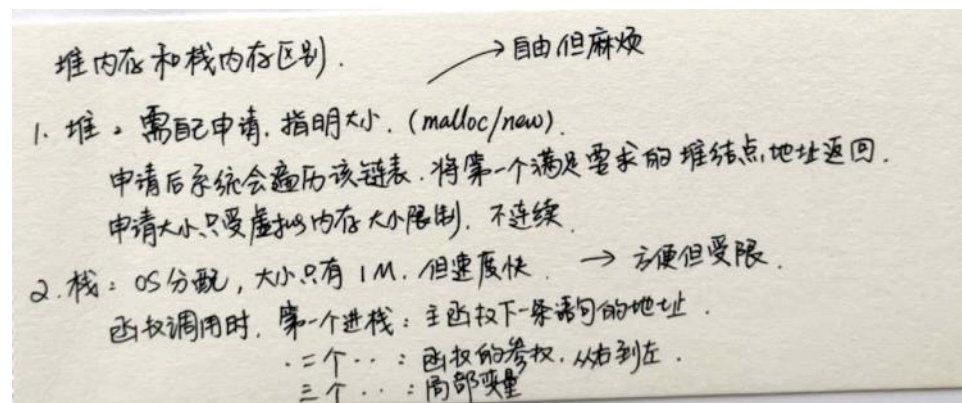 堆内存和栈内存区别. → 自由但麻烦
1. 堆。需自己申请, 指明大小. (malloc/new).
申请后系统会遍历该链表. 将第一个满足要求的堆结点地址返回.
申请大小只受虚拟内存大小限制. 不连续.
2. 栈: OS分配, 大小只有1M. 但速度快. → 方便但受限.
函数调用时. 第一个进栈: 主函数下一条语句的地址.
. 二个...: 函数的参数. 从右到左.
三个...: 局部变量